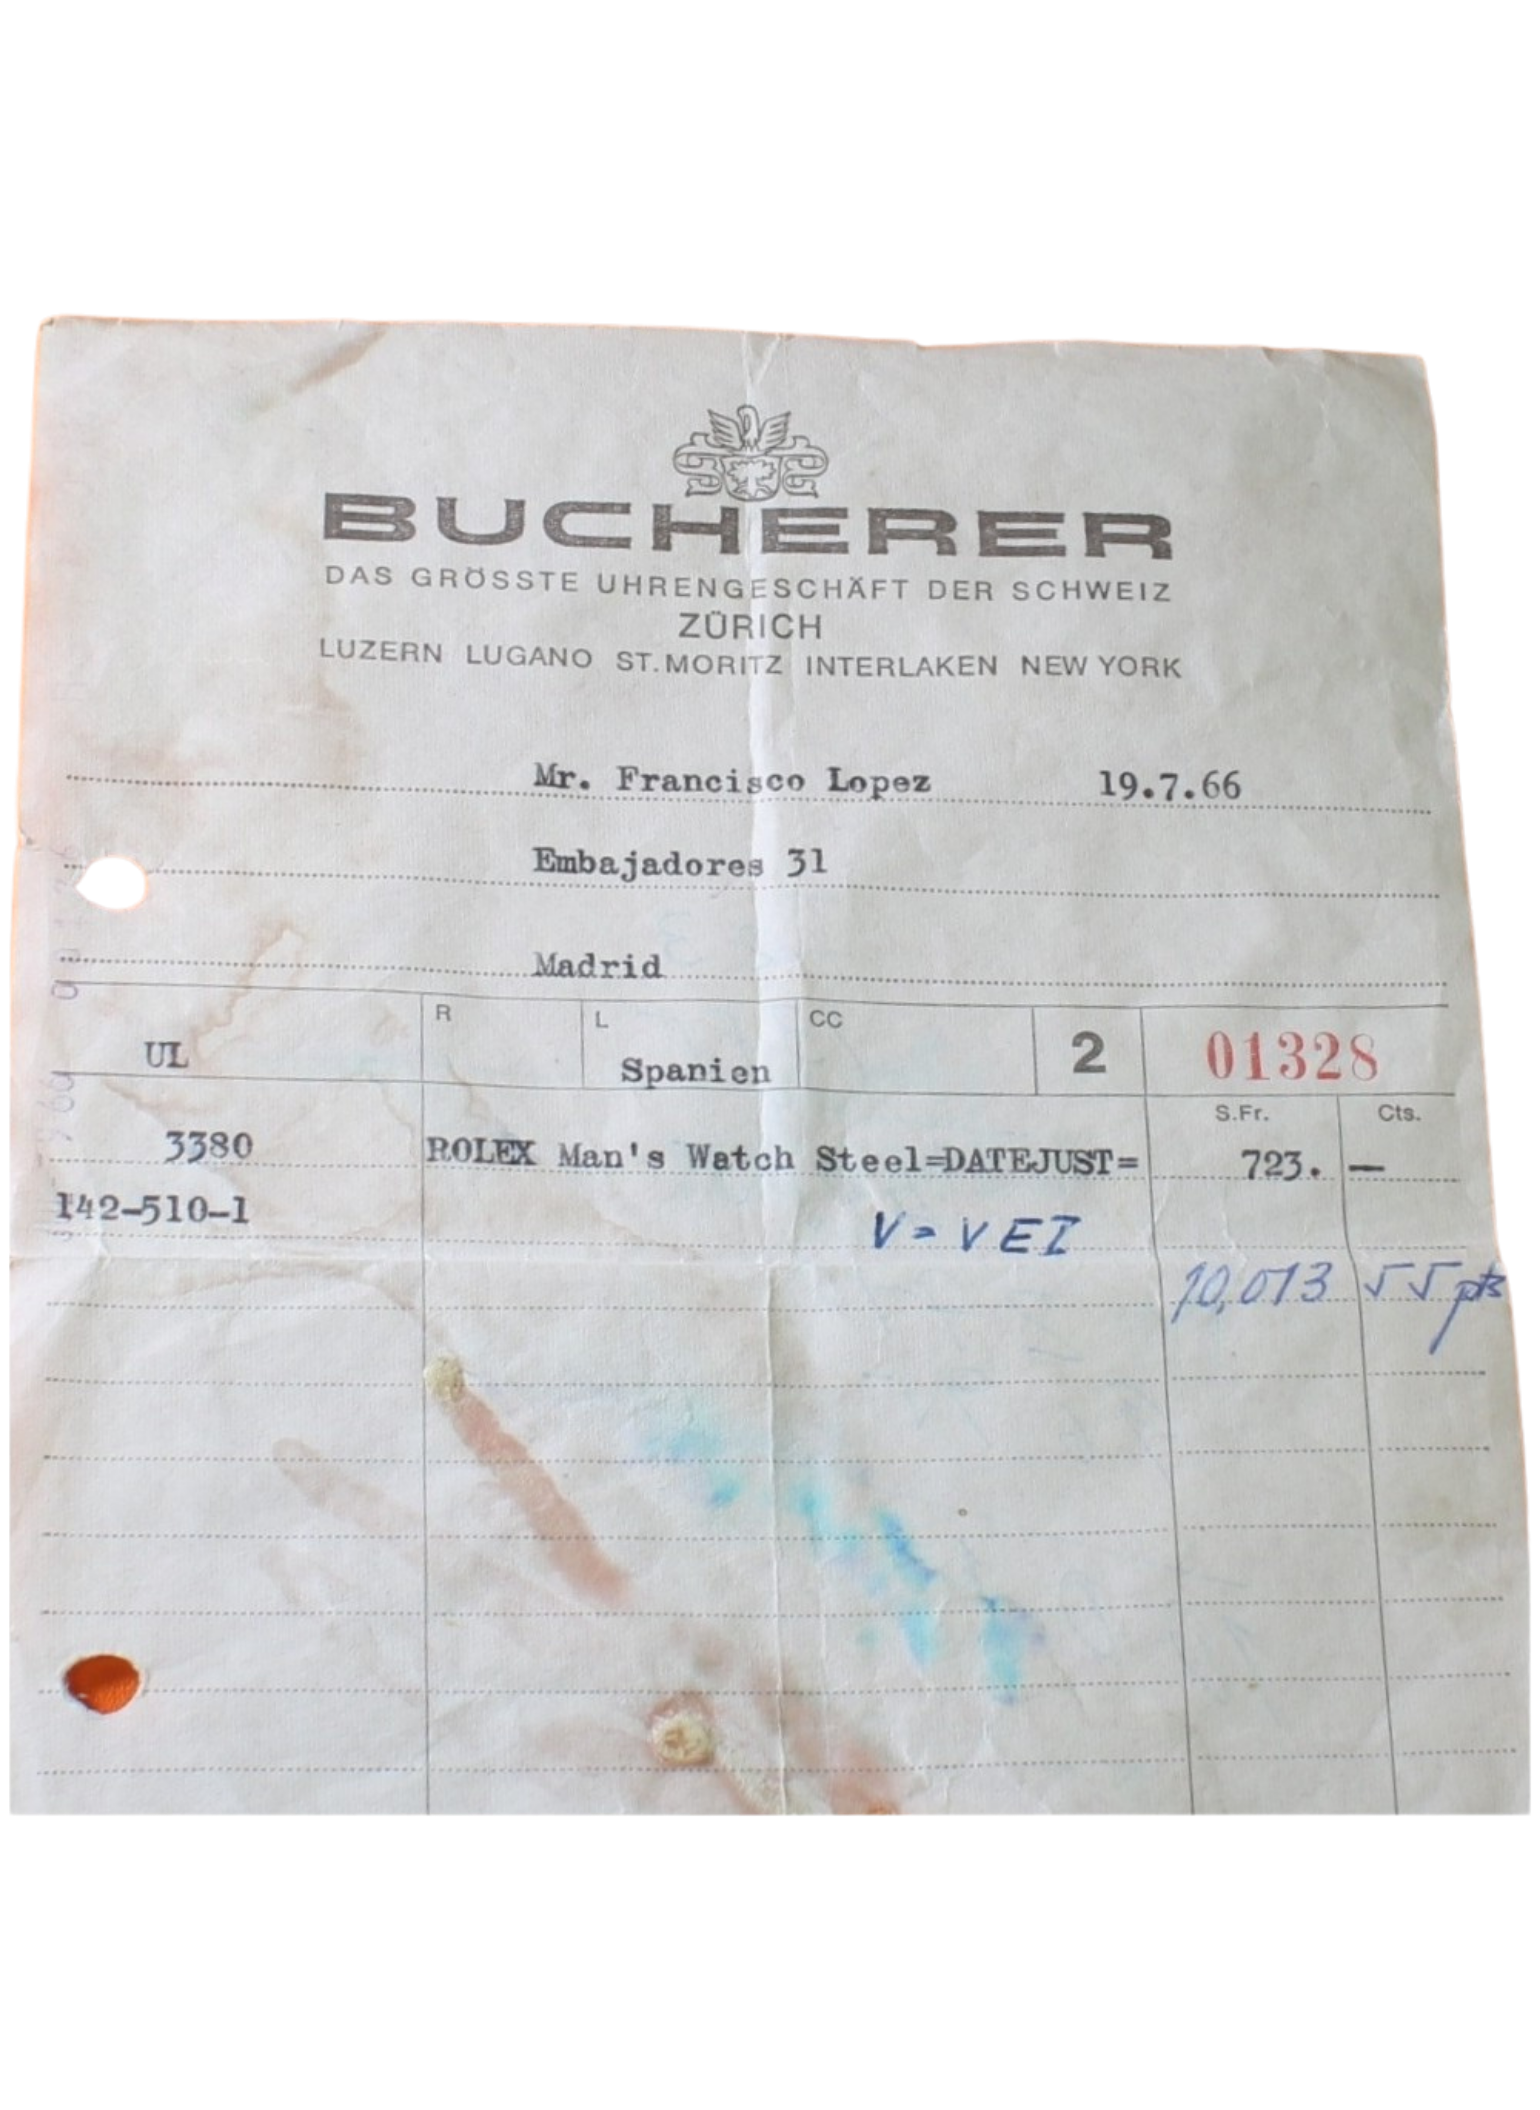 BUCHERER
DAS GRÖSSTE UHRENGESCHÄFT DER SCHWEIZ
ZÜRICH
LUZERN LUGANO ST. MORITZ INTERLAKEN NEW YORK
Mr. Francisco Lopez 19.7.66
Embajadores 31
Madrid
UL R L Spanien CC 2 01328
S.Fr. Cts.
3380 ROLEX Man's Watch Steel=DATEJUST= 723. —
142-510-1
V = VEI
10,013 55 pts